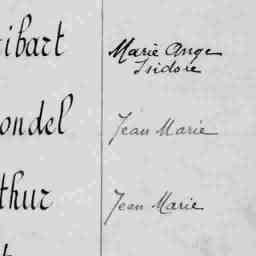 ibart Marie Ange
Isidore
ondel Jean Marie
thur Jean Marie